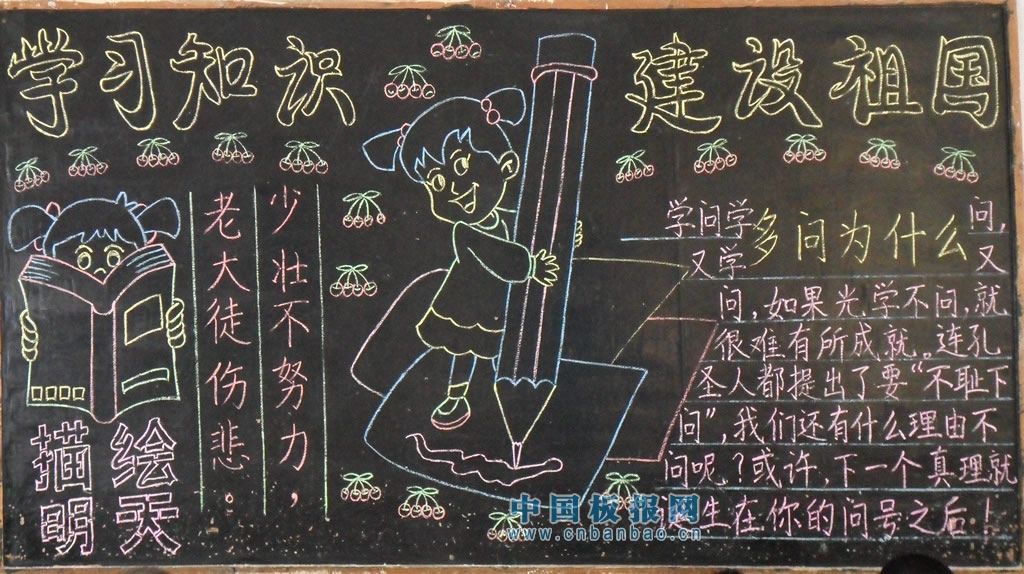 学习知识
建设祖国
少壮不努力，
老大徒伤悲。
描绘
明天
多问为什么
学问学 问,
又学 又
问,如果光学不问,就
很难有所成就。连孔
圣人都提出了要“不耻下
问”,我们还有什么理由不
问呢?或许,下一个真理就
生在你的问号之后!
中国板报网
www.cnbanbao.cn